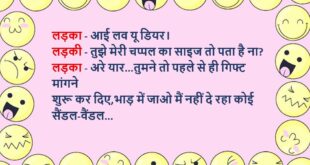 लड़का - आई लव यू डियर।
लड़की - तुझे मेरी चप्पल का साइज तो पता है ना?
लड़का - अरे यार...तुमने तो पहले से ही गिफ्ट
मांगने
शुरू कर दिए,भाड़ में जाओ मैं नहीं दे रहा कोई
सैंडल-वैंडल...